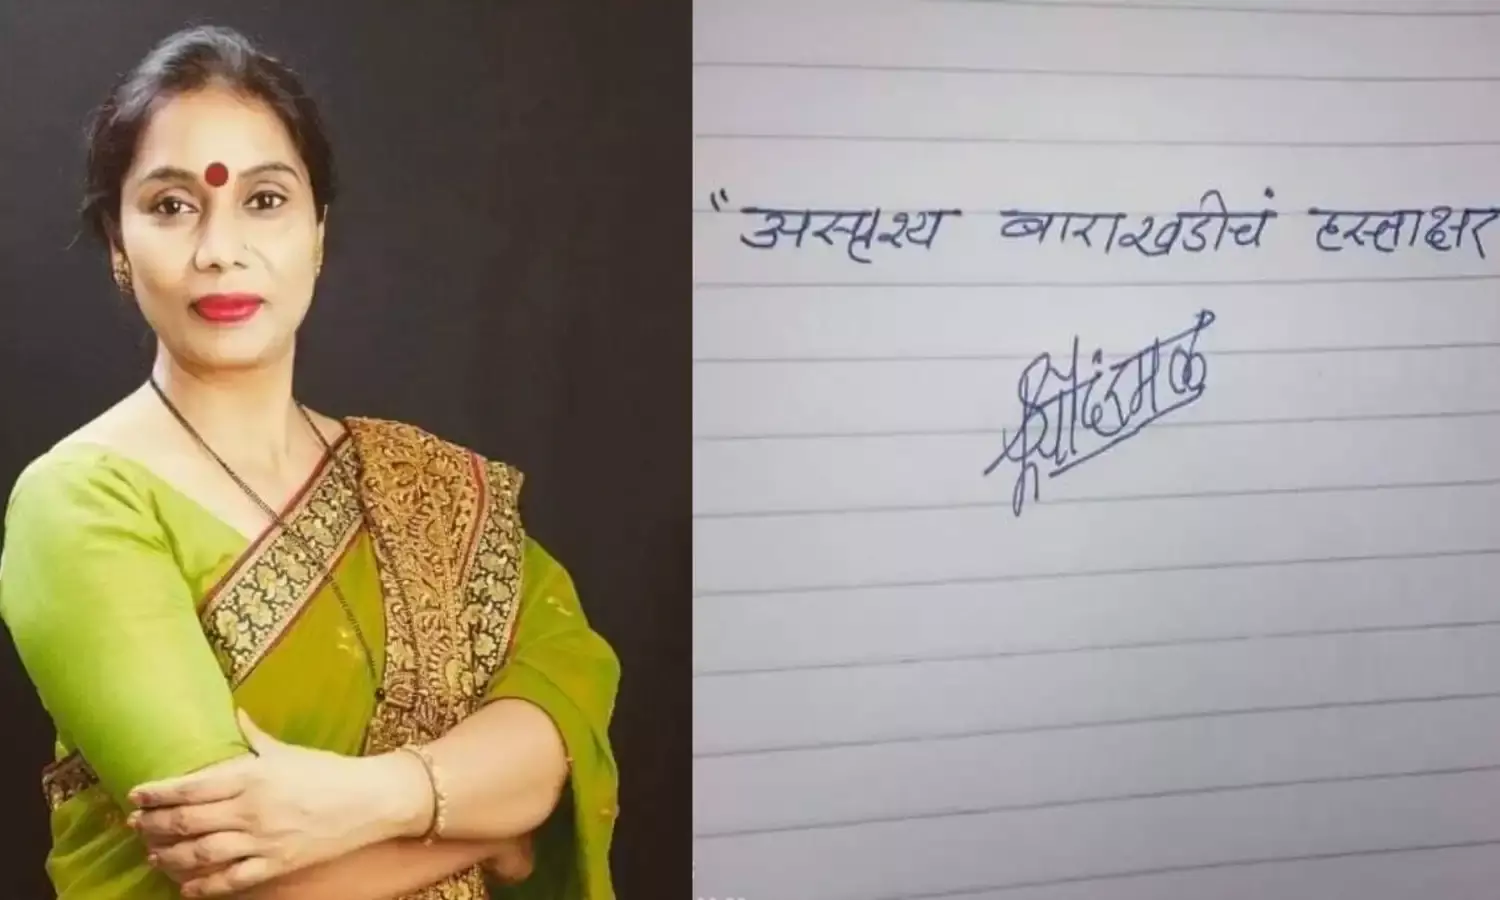 "अस्पृश्य बाराखडीचं हस्ताक्षर